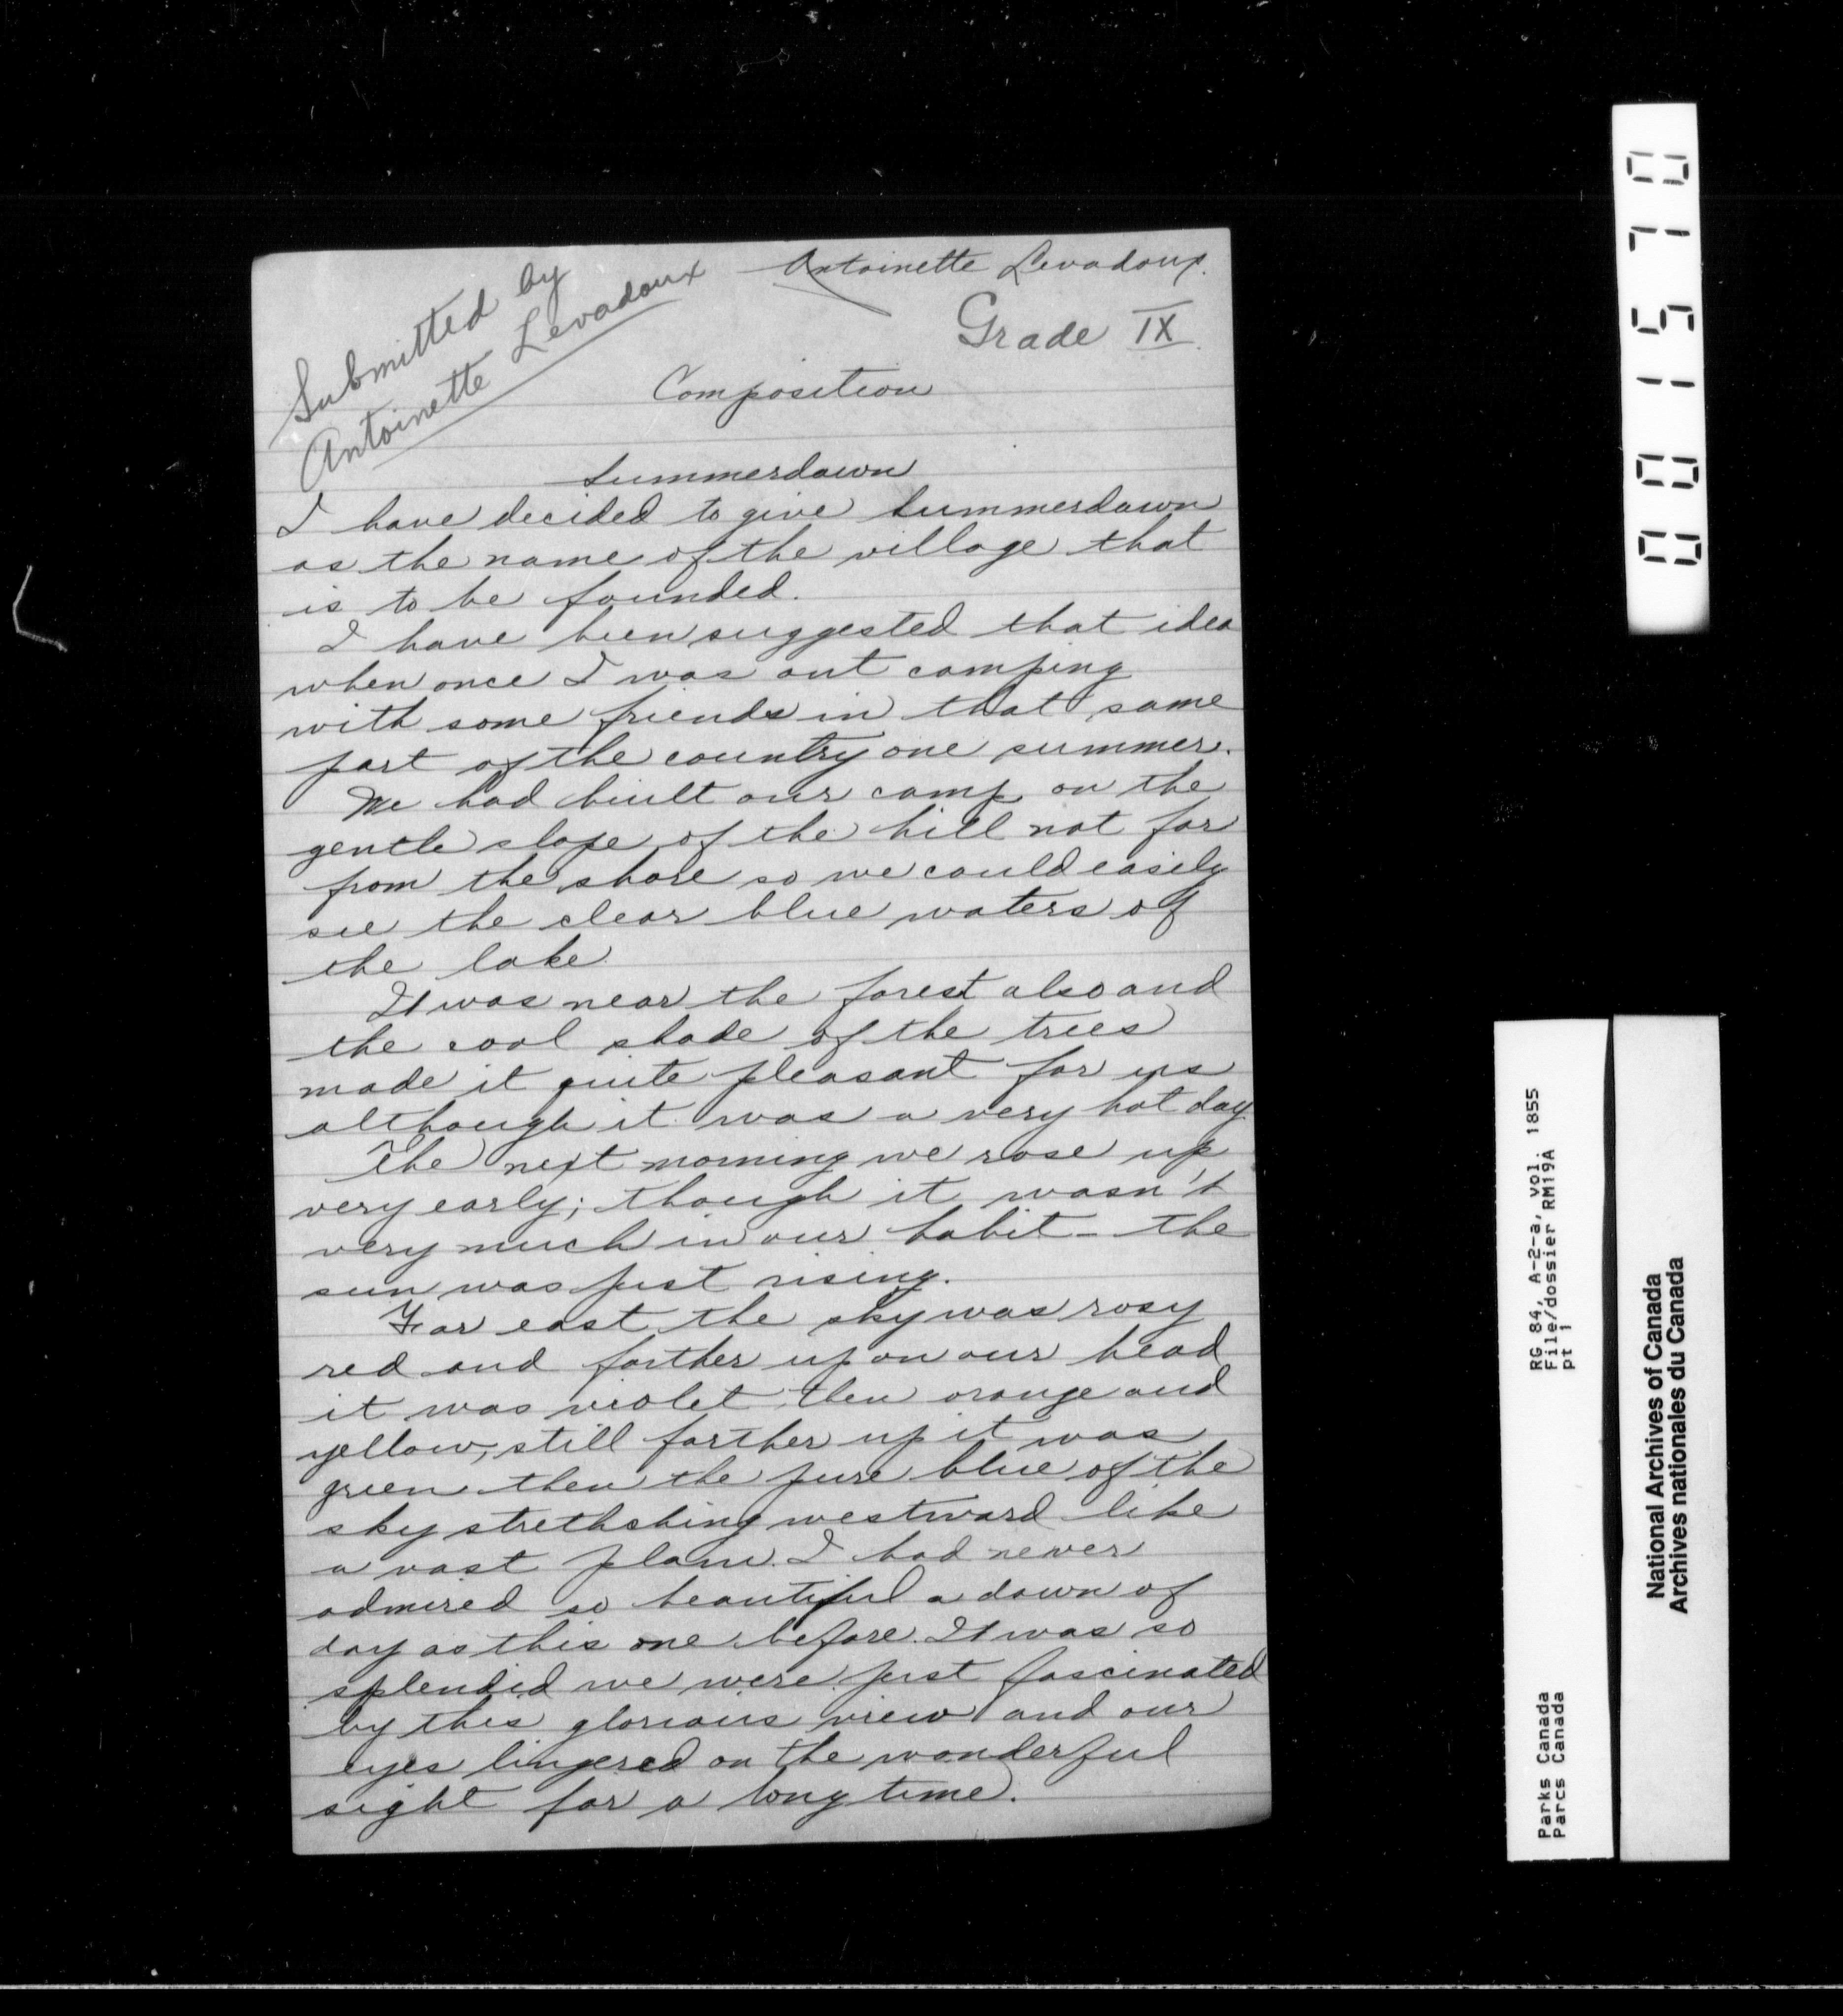 Submitted by
Antoinette Levadoux
Antoinette Levadoux.
Grade IX.
Composition
Summerdawn
I have decided to give Summerdawn
as the name of the village that
is to be founded.
I have been suggested that idea
when once I was out camping
with some friends in that same
part of the country one summer.
We had built our camp on the
gentle slope of the hill not far
from the shore so we could easily
see the clear blue waters of
the lake.
It was near the forest also and
the cool shade of the trees
made it quite pleasant for us
although it was a very hot day.
The next morning we rose up
very early; though it wasn't
very much in our habit - the
sun was just rising.
Far east the sky was rosy
red and farther up on our head
it was violet then orange and
yellow, still farther up it was
green then the pure blue of the
sky strethching westward like
a vast plain. I had never
admired so beautiful a dawn of
day as this one before. It was so
splendid we were just fascinated
by this glorious view and our
eyes lingered on the wonderful
sight for a long time.
001570
RG 84, A-2-a, vol. 1855
File/dossier RM19A
pt 1
Parks Canada
Parcs Canada
National Archives of Canada
Archives nationales du Canada